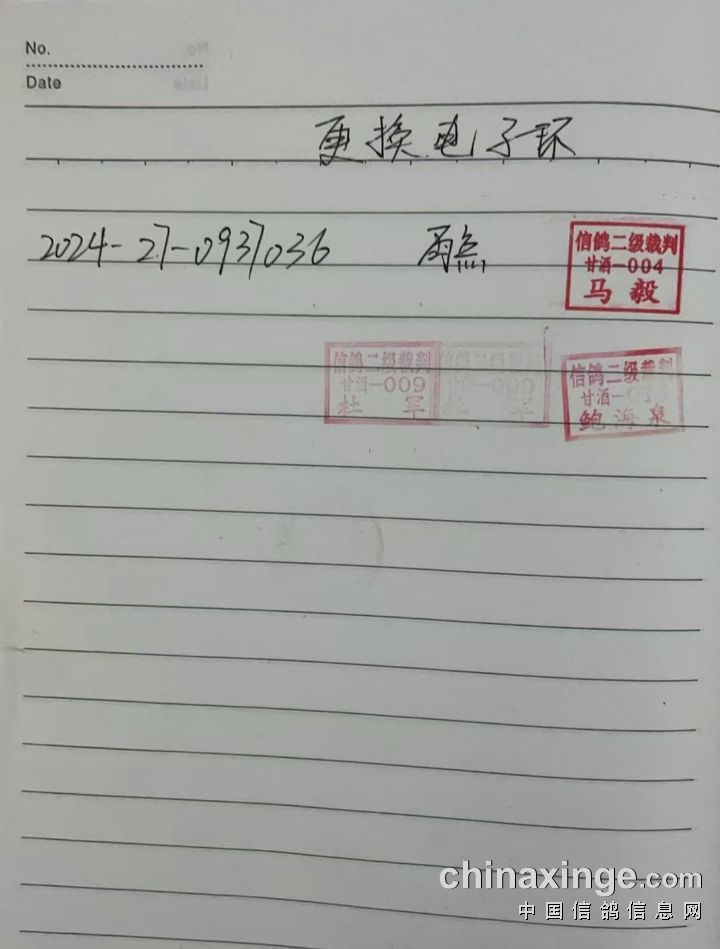 No.
Date
更换电子环
2024-27-0937036 雨点
信鸽二级裁判
甘酒-004
马毅
信鸽二级裁判
甘酒-009
杜军
信鸽二级裁判
甘酒-009
杜军
信鸽二级裁判
甘酒-
鲍海泉
chinaxinge.com
中国信鸽信息网